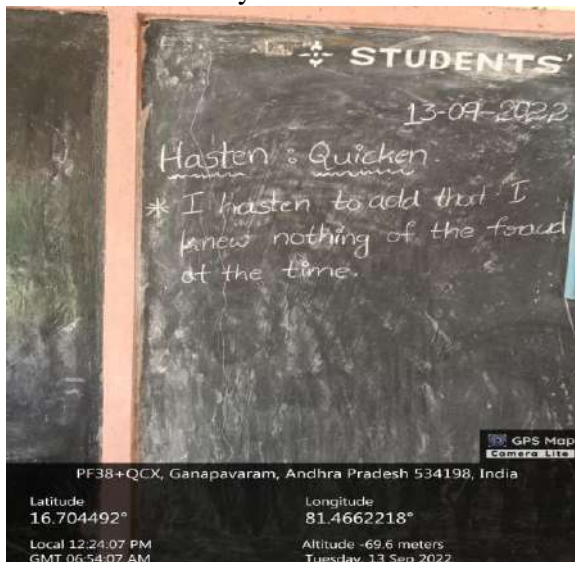 STUDENTS'
13-09-2022
Hasten : Quicken.
* I hasten to add that I
knew nothing of the fraud
at the time.
GPS Map
Camera Lite
PF38+QCX, Ganapavaram, Andhra Pradesh 534198, India
Latitude
16.704492°
Longitude
81.4662218°
Local 12:24:07 PM
GMT 06:54:07 AM
Altitude -69.6 meters
Tuesday, 13 Sep 2022